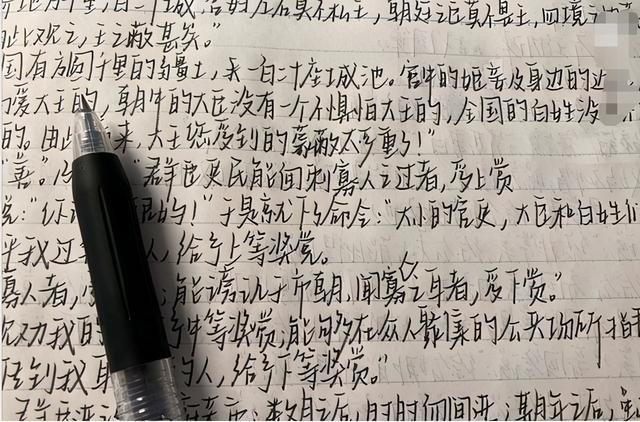 地方千里,百二十城,宫妇左右莫不私王,朝廷之臣莫不畏王,四境之
此观之,王之蔽甚矣。”
国有方圆千里的疆土,一百二十座城池。宫中的姬妾及身边的近
爱大王的,朝中的大臣没有一个不惧怕大王的,全国的百姓没
的。由此 来,大王您受到的蒙蔽太多重了!”
“善。” “群臣吏民能面刺寡人之过者,受上赏
说:“ 的!”于是就下了命令:“大小的官吏,大臣和百姓们
我过 人,给予上等奖赏。
寡人者, ;能谤讥于市朝,闻寡人之耳者,受下赏。”
劝我的 中等奖赏;能够在众人聚集的公共场所指
传到我耳 的人,给予下等奖赏。”
;数月之后,时时而间进;期年之后,